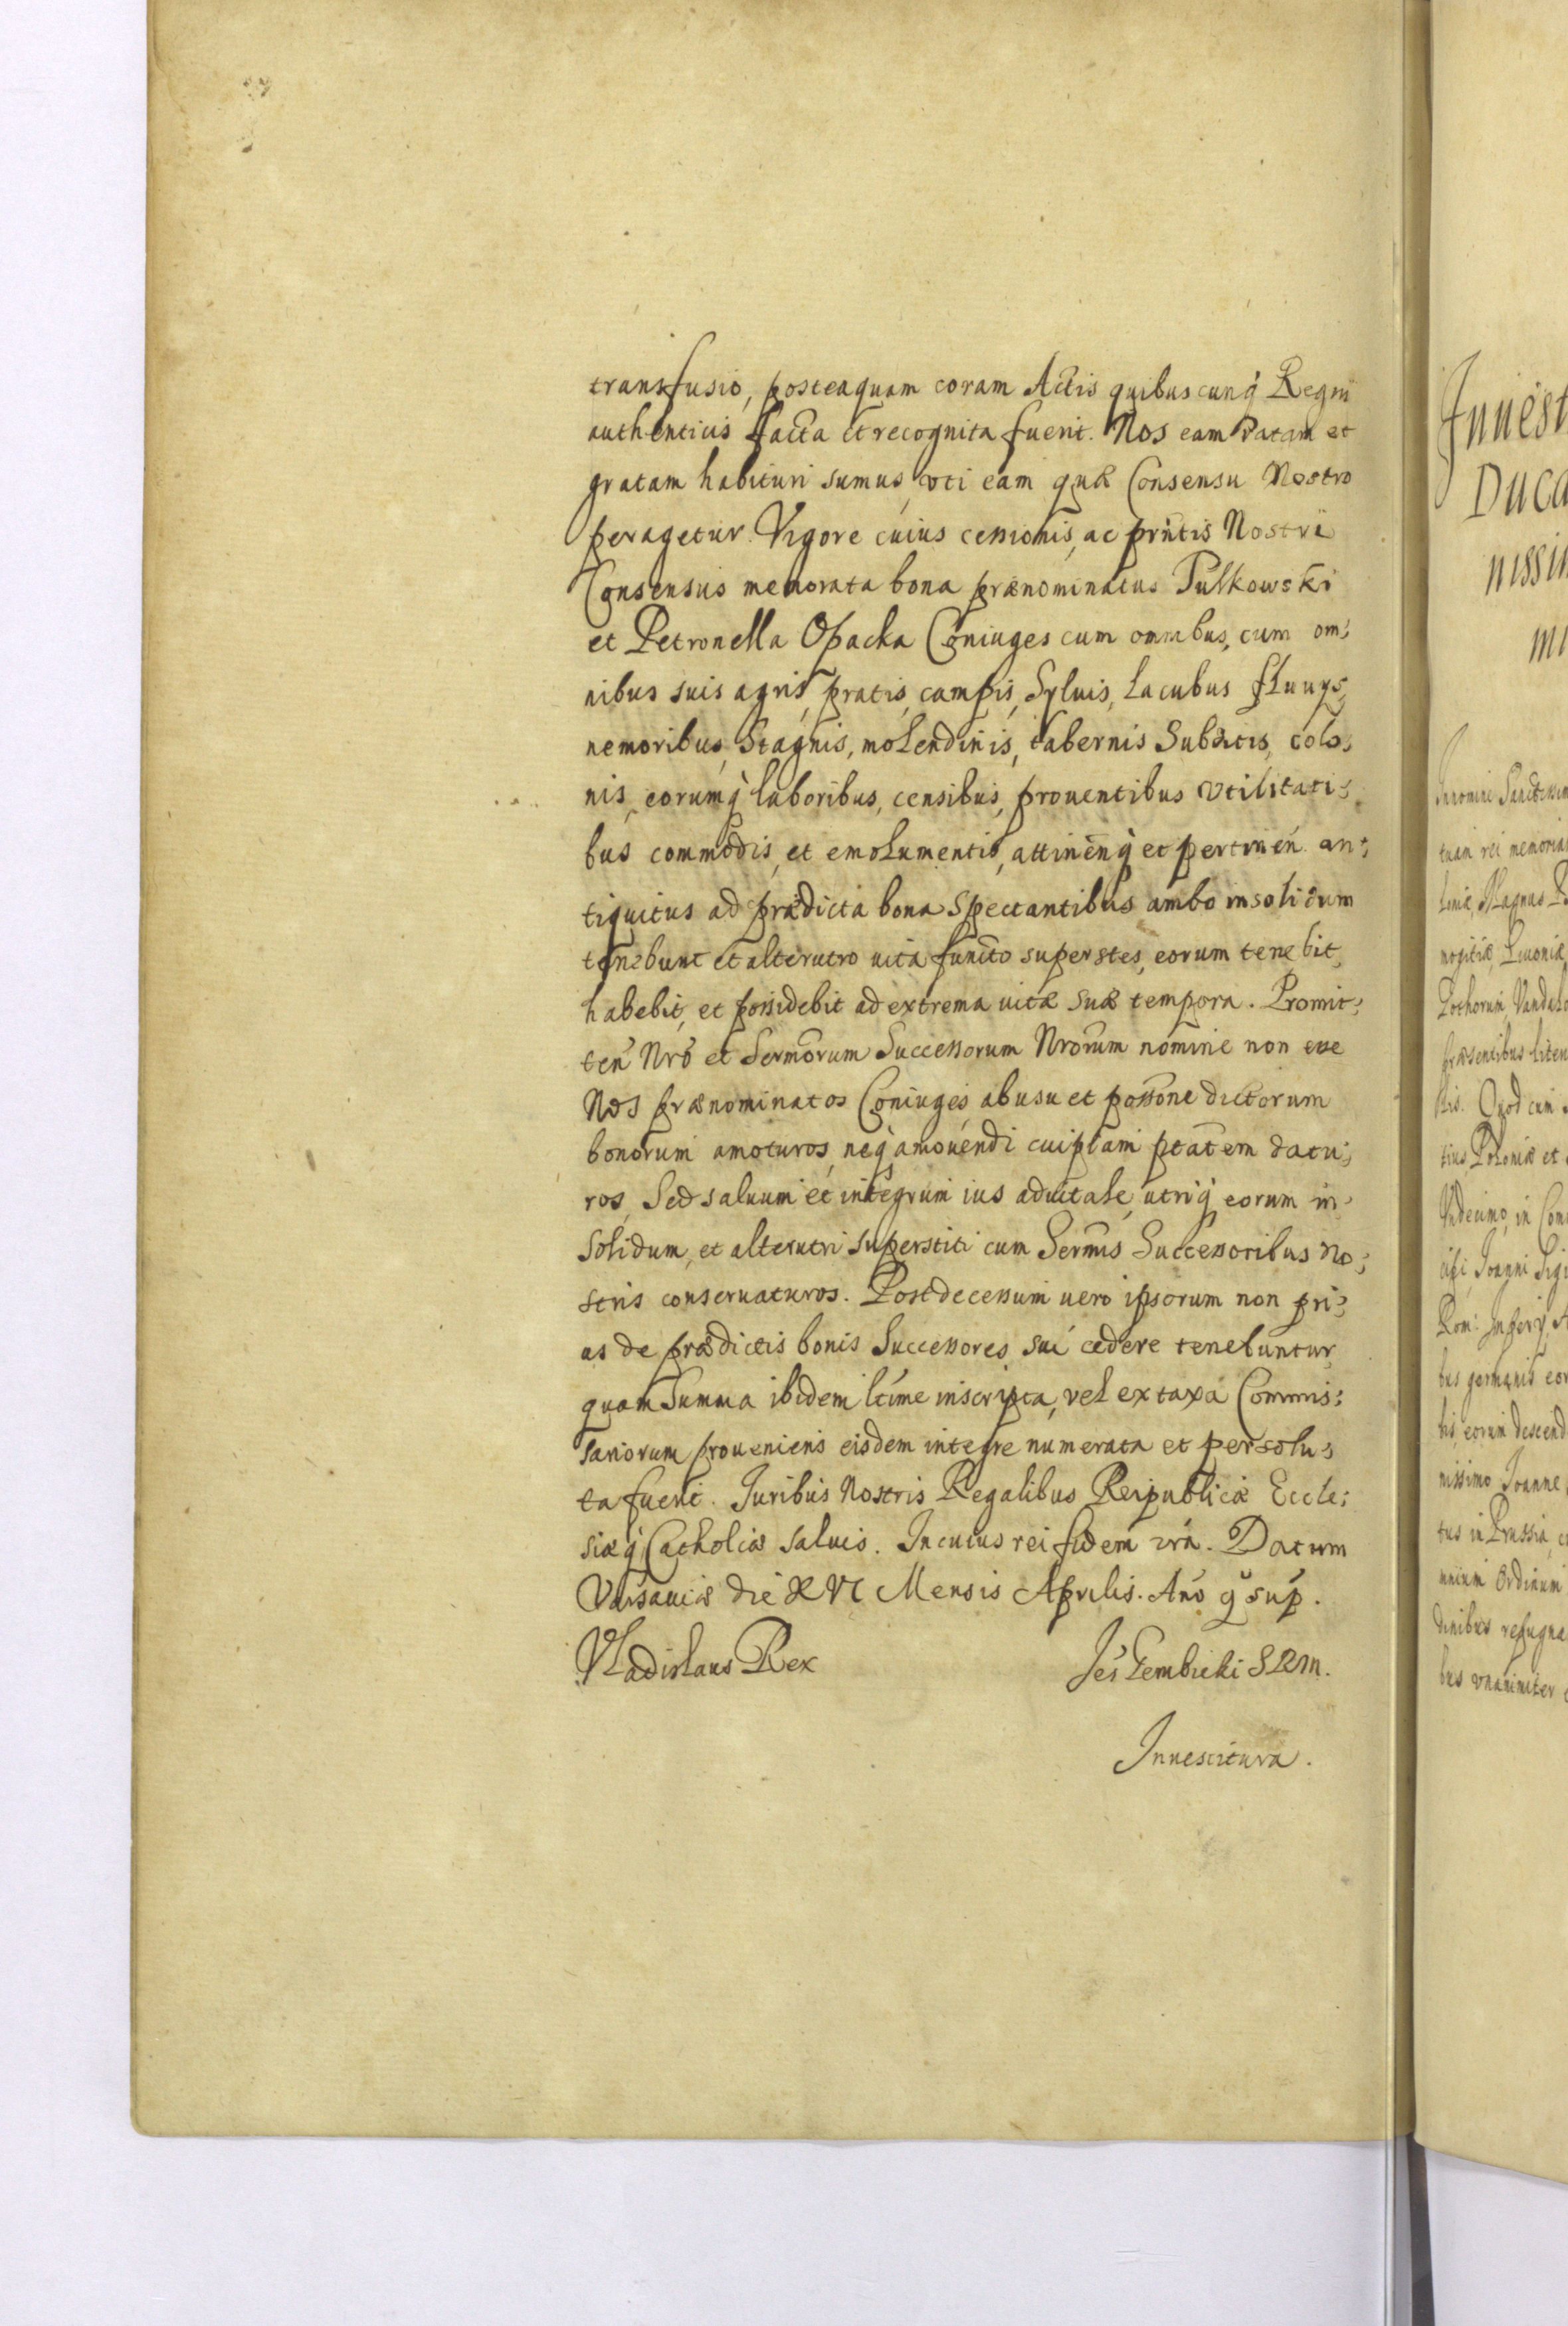 transfusio, posteaquam coram Actis quibuscunq̀ Regni
authenticis facta et recognita fuerit. Nos eam ratam et
gratam habituri sumus, vti eam quæ Consensu Nostro
peragetur. Vigore cuius cessionis, ac prñtis Nostri
Consensus memorata bona prænominatus Pulkowski
et Petronella Opacka Coniuges cum omnibus, cum om;
nibus suis agris, pratis, campis, Syluis, Lacubus fluuys,
nemoribus, Stagnis, molendinis, tabernis Subditis, colo;
nis, eorumq̀ laboribus, censibus, prouentibus vtilitati;
bus commodis, et emolumentis, attinenq̀ et pertinen̄ an;
tiquitus ad prædicta bona spectantibus ambo insolidum
tenebunt et alterutro uita functo superstes, eorum tenebit,
habebit, et possidebit ad extrema uitæ suæ tempora. Promit;
ten̄ Nrō et Sermorum Successorum Nrorum nomine non esse
Nos prænominatos Coniuges ab usu et possone dictorum
bonorum amoturos, neq̀ amouendi cuipiam ptatem datu;
ros, Sed saluum et integrum ius aduitale, utriq̀ eorum in
Solidum, et alterutri superstiti cum Sermis Successoribus No;
stris conseruaturos. Post decessum uero ipsorum non pri;
us de prædictis bonis Successores sui cedere tenebuntur,
quam Summa ibidem ltime inscripta, vel ex taxa Commis;
sariorum proueniens eisdem integre numerata et persolu;
ta fuerit. Juribus Nostris Regalibus Reipublicæ Eccle;
siæq̀ Catholicæ saluis. In cuius rei fidem
Datum
Varsauiæ die XVI Mensis Aprilis. Anō q̄ sup̄.
Vladislaus Rex
Jēs Gembicki SRM.
Inuestitura.
Inuest
Duca
nissi
mi
tuam rei memoria
Magnus
Liuoniæ
Gothorum, Vandalo
Quod cum
tius Poloniæ et
Vndecimo, in Com
Joanni Sigi
Rom: Imperij
bus germanis eor
eorum descend
nissimo Joanne
tus in Prussia
Ordinum
dinibus repugna
bus vnanimiter